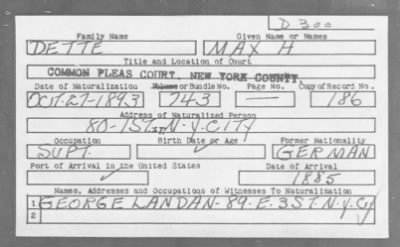 D 300
Family Name Given Name or Names
DETTE MAX H
Title and Location of Court
COMMON PLEAS COURT, NEW YORK COUNTY.
Date of Naturalization Volume or Bundle No. Page No. Copy of Record No.
OCT-27-1893 743 — 186
Address of Naturalized Person
80-1ST. ST. N.Y. CITY
Occupation Birth Date or Age Former Nationality
SUPT. ✓ GERMAN
Port of Arrival in the United States Date of Arrival
✓ 1885
Names, Addresses and Occupations of Witnesses To Naturalization
1 GEORGE LANDAN-89-E. 3 ST. N.Y. City
2